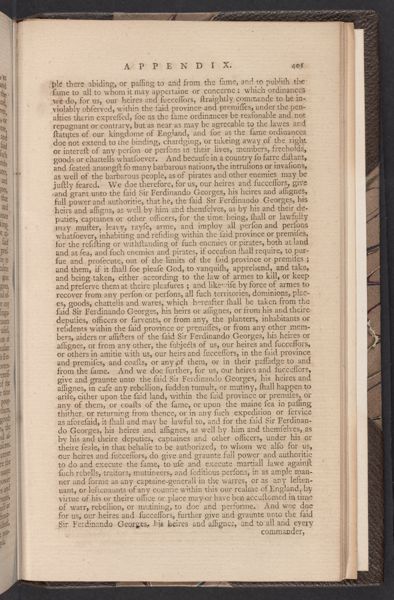 APPENDIX. 401
ple there abiding, or passing to and from the same, and to publish the
same to all to whom it may appertaine or concerne: which ordinances
we do, for us, our heires and successors, straightly commande to be in-
violably observed, within the said province and premisses, under the pen-
alties therin expressed, soe as the same ordinances be reasonable and not
repugnant or contrary, but as near as may be agreeable to the lawes and
statutes of our kingdome of England, and soe as the same ordinances
doe not extend to the binding, chardging, or takeing away of the right
or interest of any person or persons in their lives, members, freeholds,
goods or chattells whatsoever. And because in a country so farre distant,
and seated amongst so many barbarous nations, the intrusions or invasions,
as well of the barbarous people, as of pirates and other enemies may be
justly feared. We doe therefore, for us, our heires and successors, give
and grant unto the said Sir Ferdinando Georges, his heires and assignes,
full power and authoritie, that he, the said Sir Ferdinando Georges, his
heirs and assigns, as well by him and themselves, as by his and their de-
puties, captaines or other officers, for the time being, shall or lawfully
may muster, leavy, rayse, arme, and imploy all person and persons
whatsoever, inhabiting and resideing within the said province or premises,
for the resisting or withstanding of such enemies or pirates, both at land
and at sea, and such enemies and pirates, if occasion shall require, to pur-
sue and prosecute, out of the limits of the said province or premises;
and them, if it shall soe please God, to vanquish, apprehend, and take,
and being taken, either according to the law of armes to kill, or keep
and preserve them at theire pleasures; and likewise by force of armes to
recover from any person or persons, all such territories, dominions, plac-
es, goods, chattells and wares, which hereafter shall be taken from the
said Sir Ferdinando Georges, his heirs or assignes, or from his and theire
deputies, officers or servants, or from any, the planters, inhabitants or
residents within the said province or premisses, or from any other mem-
bers, aiders or assisters of the said Sir Ferdinando Georges, his heires or
assignes, or from any other, the subjects of us, our heires and successors,
or others in amitie with us, our heirs and successors, in the said province
and premises, and coasts, or any of them, or in their passadge to and
from the same. And we doe further, for us, our heires and successors,
give and graunte unto the said Sir Ferdinando Georges, his heires and
assignes, in case any rebellion, sudden tumult, or mutiny, shall happen to
arise, either upon the said land, within the said province or premises, or
any of them, or coasts of the same, or upon the maine sea in passing
thither, or returning from thence, or in any such expedition or service
as aforesaid, it shall and may be lawful to, and for the said Sir Ferdinan-
do Georges, his heires and assignes, as well by him and themselves, as
by his and theire deputies, captaines and other officers, under his or
theire seale, in that behalfe to be authorized, to whom we also for us,
our heires and successors, do give and graunte full power and authoritie
to do and execute the same, to use and execute martiall lawe against
such rebells, traitors, mutineers, and seditious persons, in as ample man-
ner and forme as any captaine-generall in the warres, or as any leften-
nant, or leftennants of any countie within this our realme of England, by
virtue of his or theire office or place may or have ben accustomed in time
of warr, rebellion, or mutining, to doe and performe. And wee doe
for us, our heires and successors, further give and graunte unto the said
Sir Ferdinando Georges, his heires and assignes, and to all and every
commander,